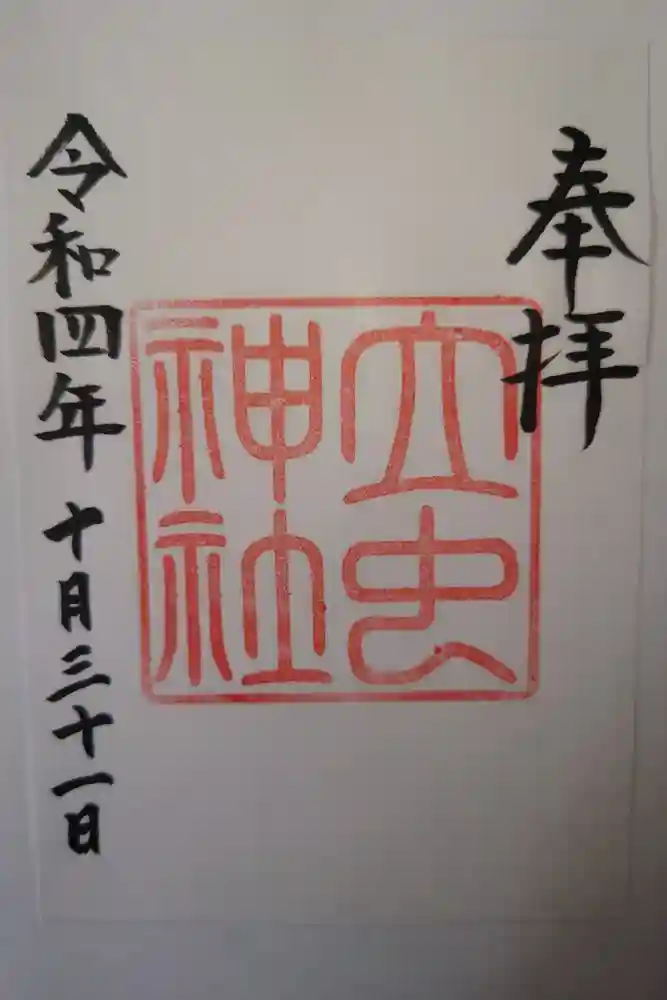 奉拝
立虫
神社
令和四年十月三十一日